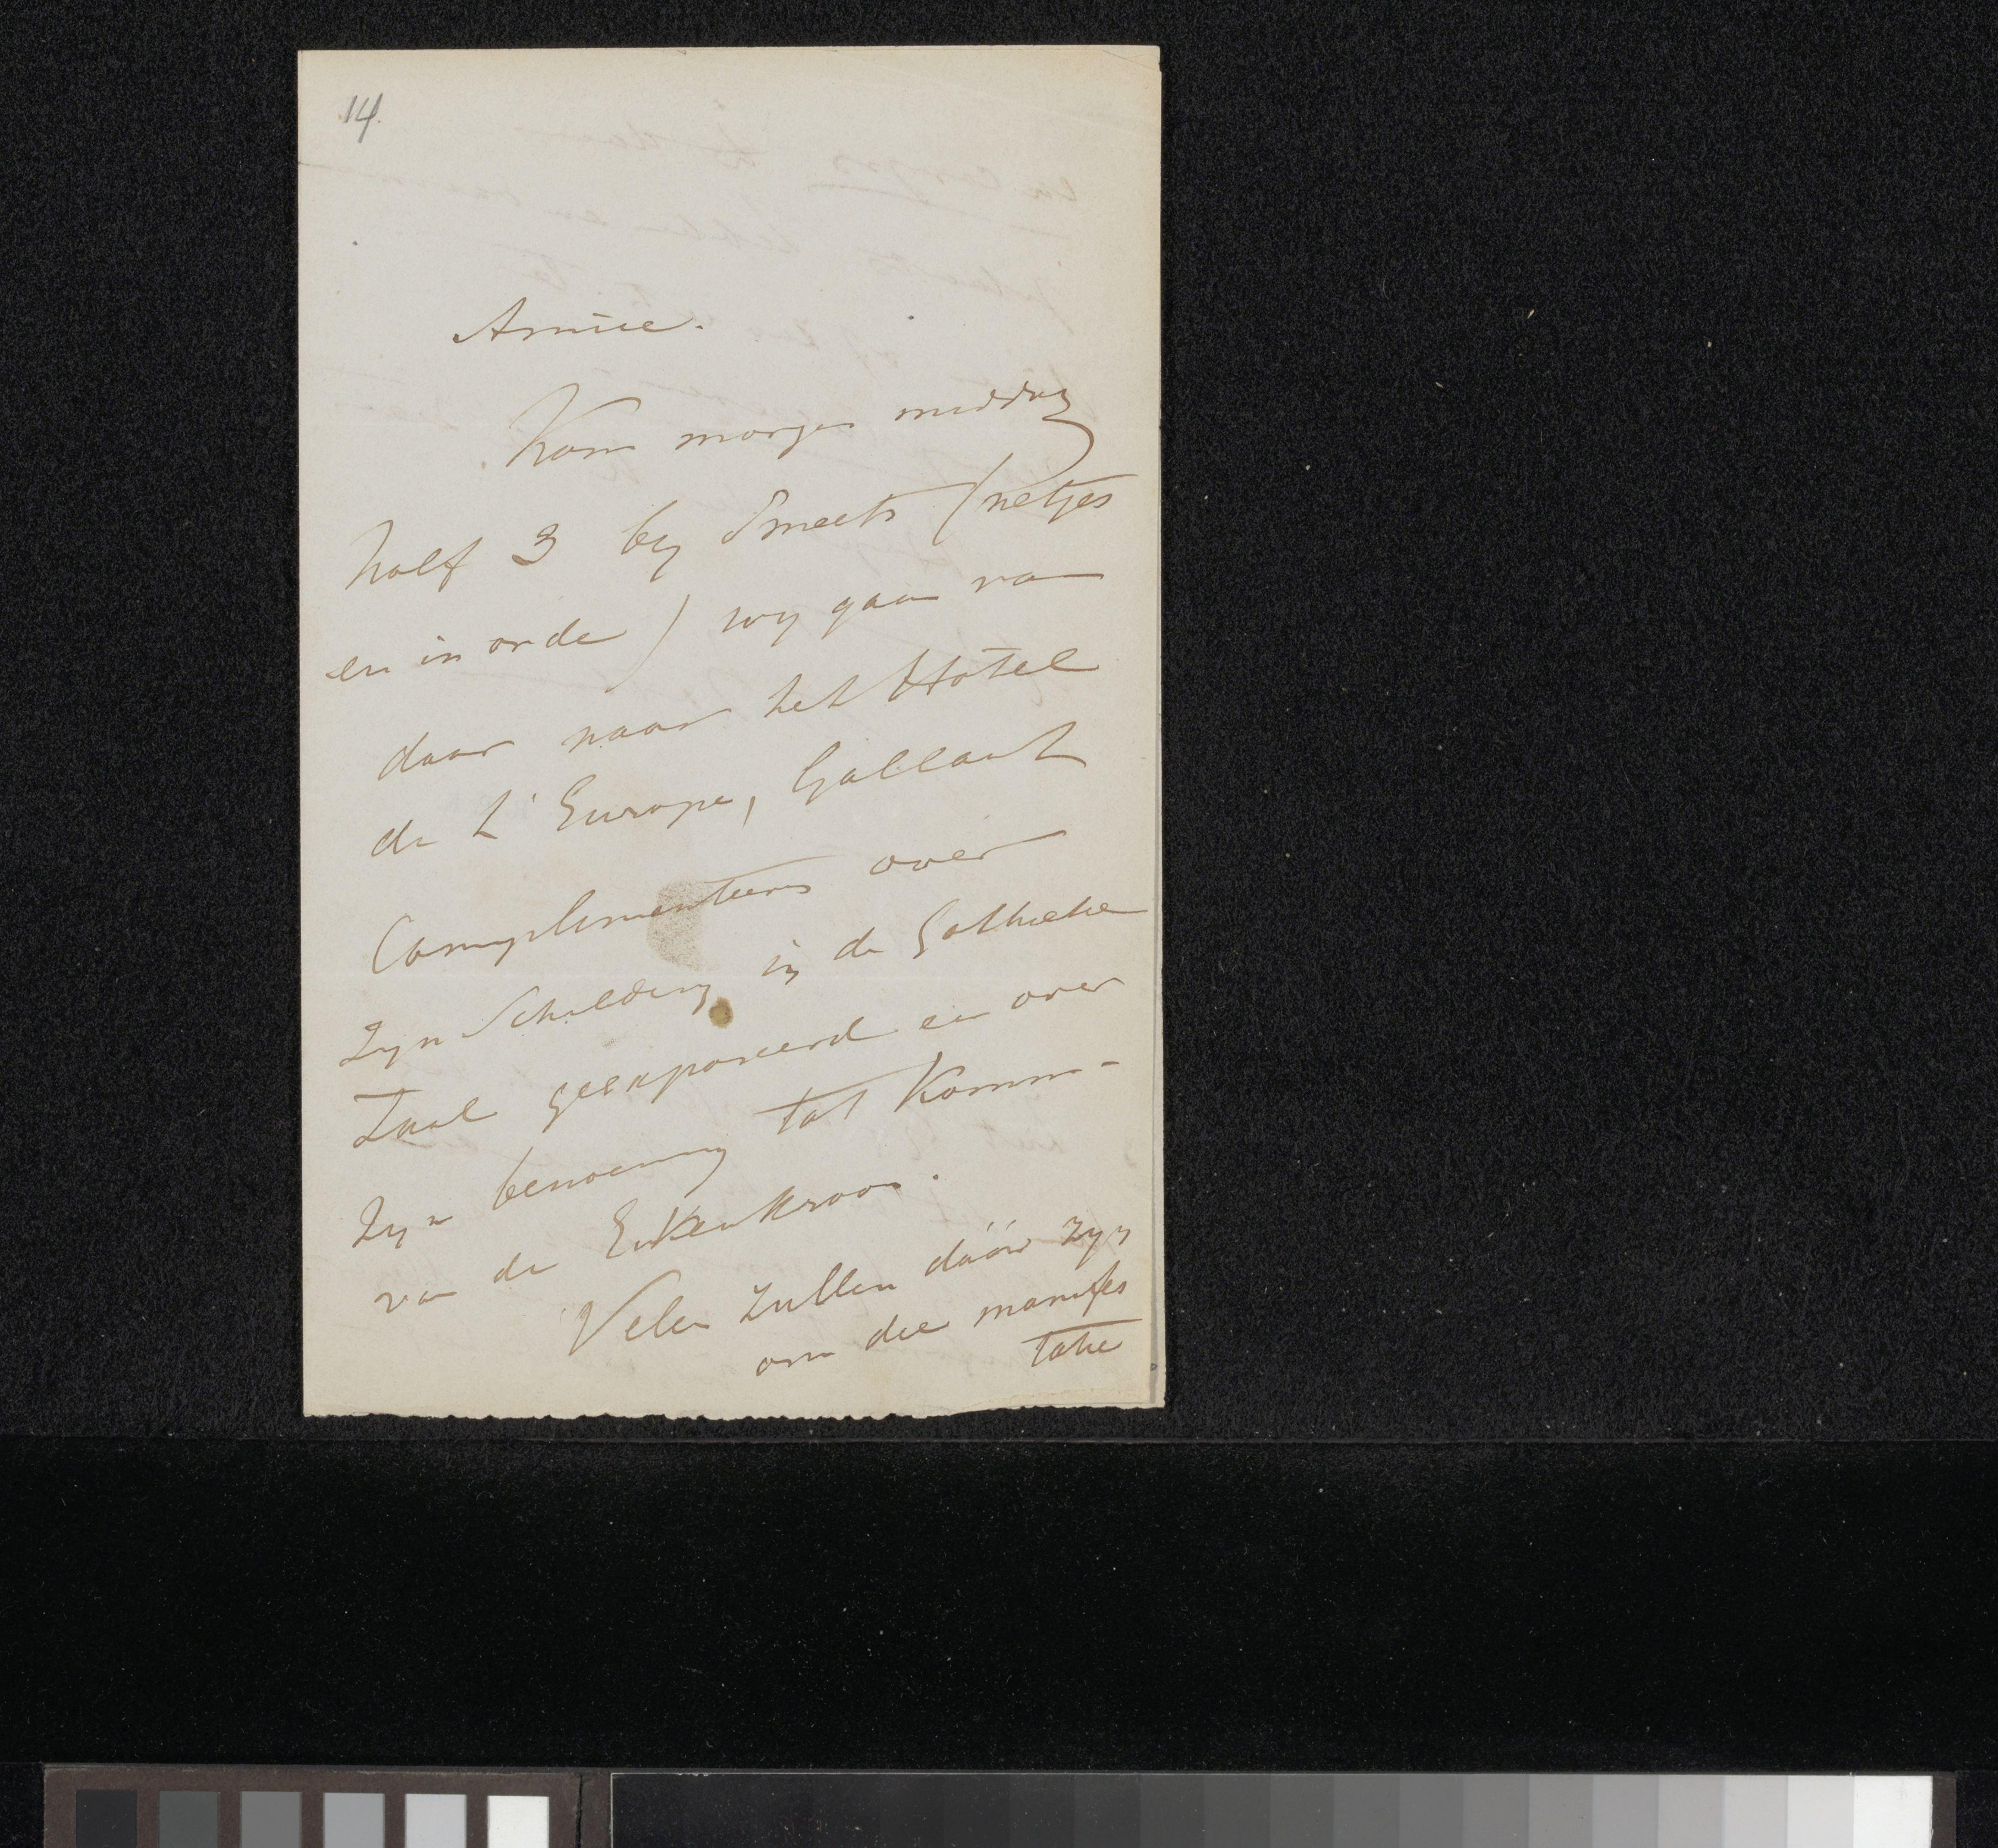 14.
Amice.
Kom morgen middag
half 3 by Smeets (netjes
en in orde) wy gaan van
daar naar het Hotel
de L'Europe, Gallait
Complimenteeren over
zyn Schildery in de Gothieke
Zaal geexposeerd en over
zyn benoeming tot Komm-
van de Eikenkroon.
Velen zullen dáár zyn
om die manifes
tatie